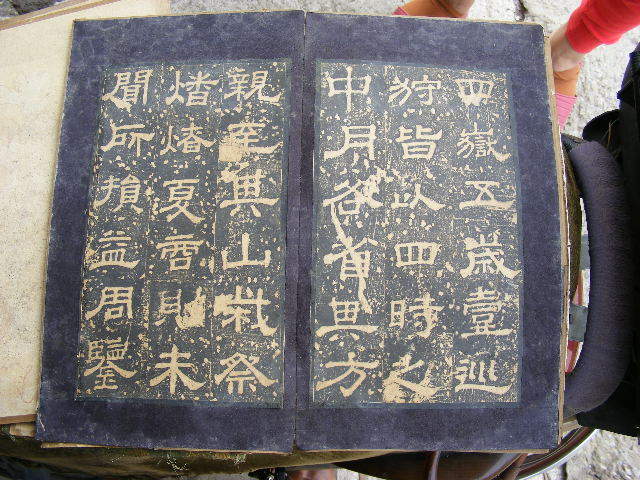 四嶽五歲壹巡
狩皆以四時之
中月各省其方
親至其山柴祭
燔燎夏商則未
聞所損益周鑒